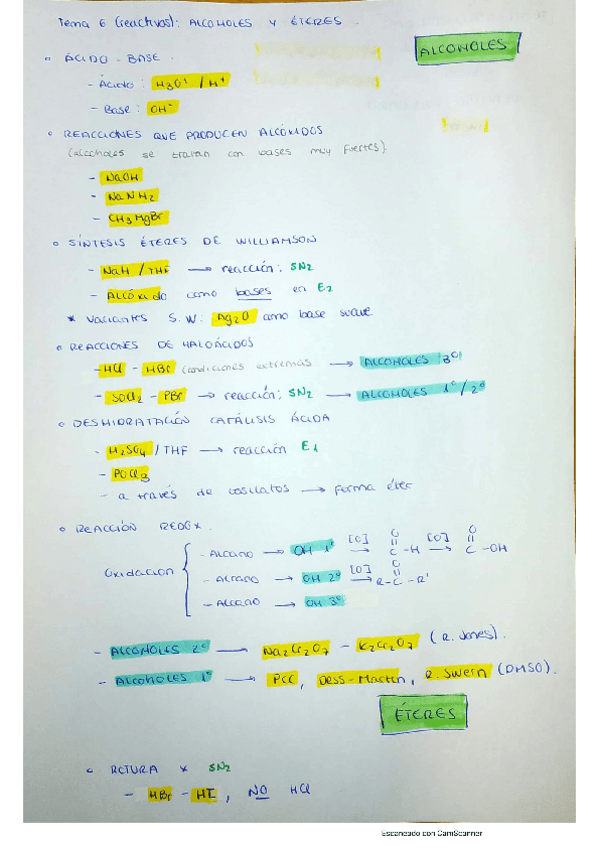 Tema 6 (reactivos): ALCOHOLES Y ÉTERES.
ALCOHOLES
ÁCIDO-BASE.
- Ácido: H3O+ / H+
- Base: OH-
REACCIONES QUE PRODUCEN ALCÓXIDOS
(alcoholes se tratan con bases muy fuertes)
- NaOH
- NaNH2
- CH3MgBr
SÍNTESIS ÉTERES DE WILLIAMSON
- NaH / THF → reacción: SN2
- Alcóxido como bases en E2
* Variantes S.W: Ag2O como base suave.
REACCIONES DE HALOÁCIDOS
- HCl - HBr (condiciones extremas → ALCOHOLES 3º
- SOCl2 - PBr → reacción; SN2 → ALCOHOLES 1º/2º
DESHIDRATACIÓN CATÁLISIS ÁCIDA
- H2SO4 / THF → reacción E1
- POCl3
- a través de tosilatos → forma éter
REACCIÓN REDOX.
Oxidacion
- Alcano → OH 1º [O] → O = C - H [O] → O = C - OH
- Alcano → OH 2º [O] → R - C - R' = O
- Alcano → OH 3º
- ALCOHOLES 2º → Na2Cr2O7 - K2Cr2O7 (R. Jones).
- ALCOHOLES 1º → PCC, Dess-Martin, R. Swern (DMSO).
ÉTERES
RUTURA x SN2
- HBr - HI, NO HCl
Escaneado con CamScanner